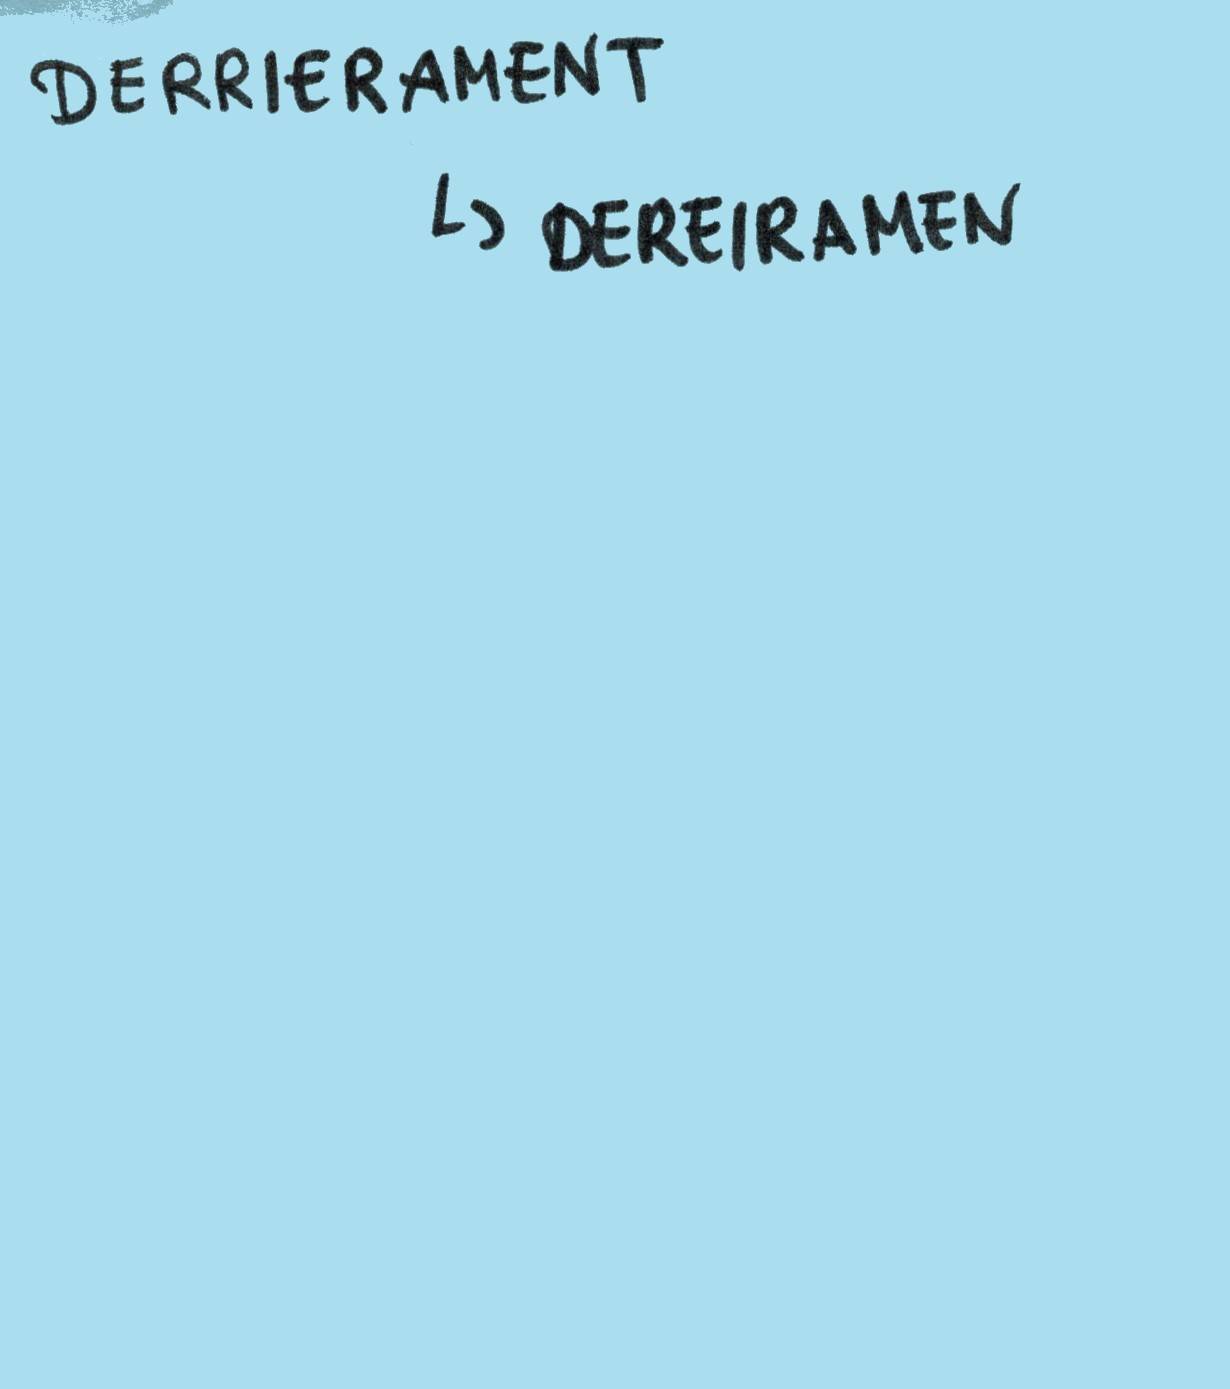 DERRIERAMENT
↳ DEREIRAMEN